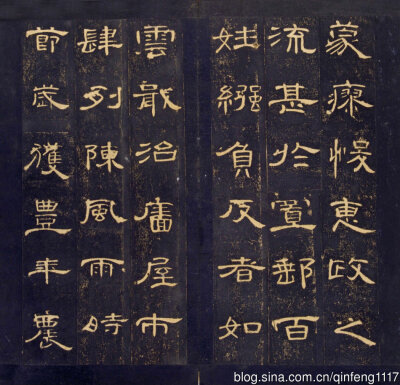 蒙瘳悛惠政之
流甚於置郵百
姓繦負反者如
雲戢治廧屋市
肆列陳風雨時
節歲獲豐年農
blog.sina.com.cn/qinfeng1117